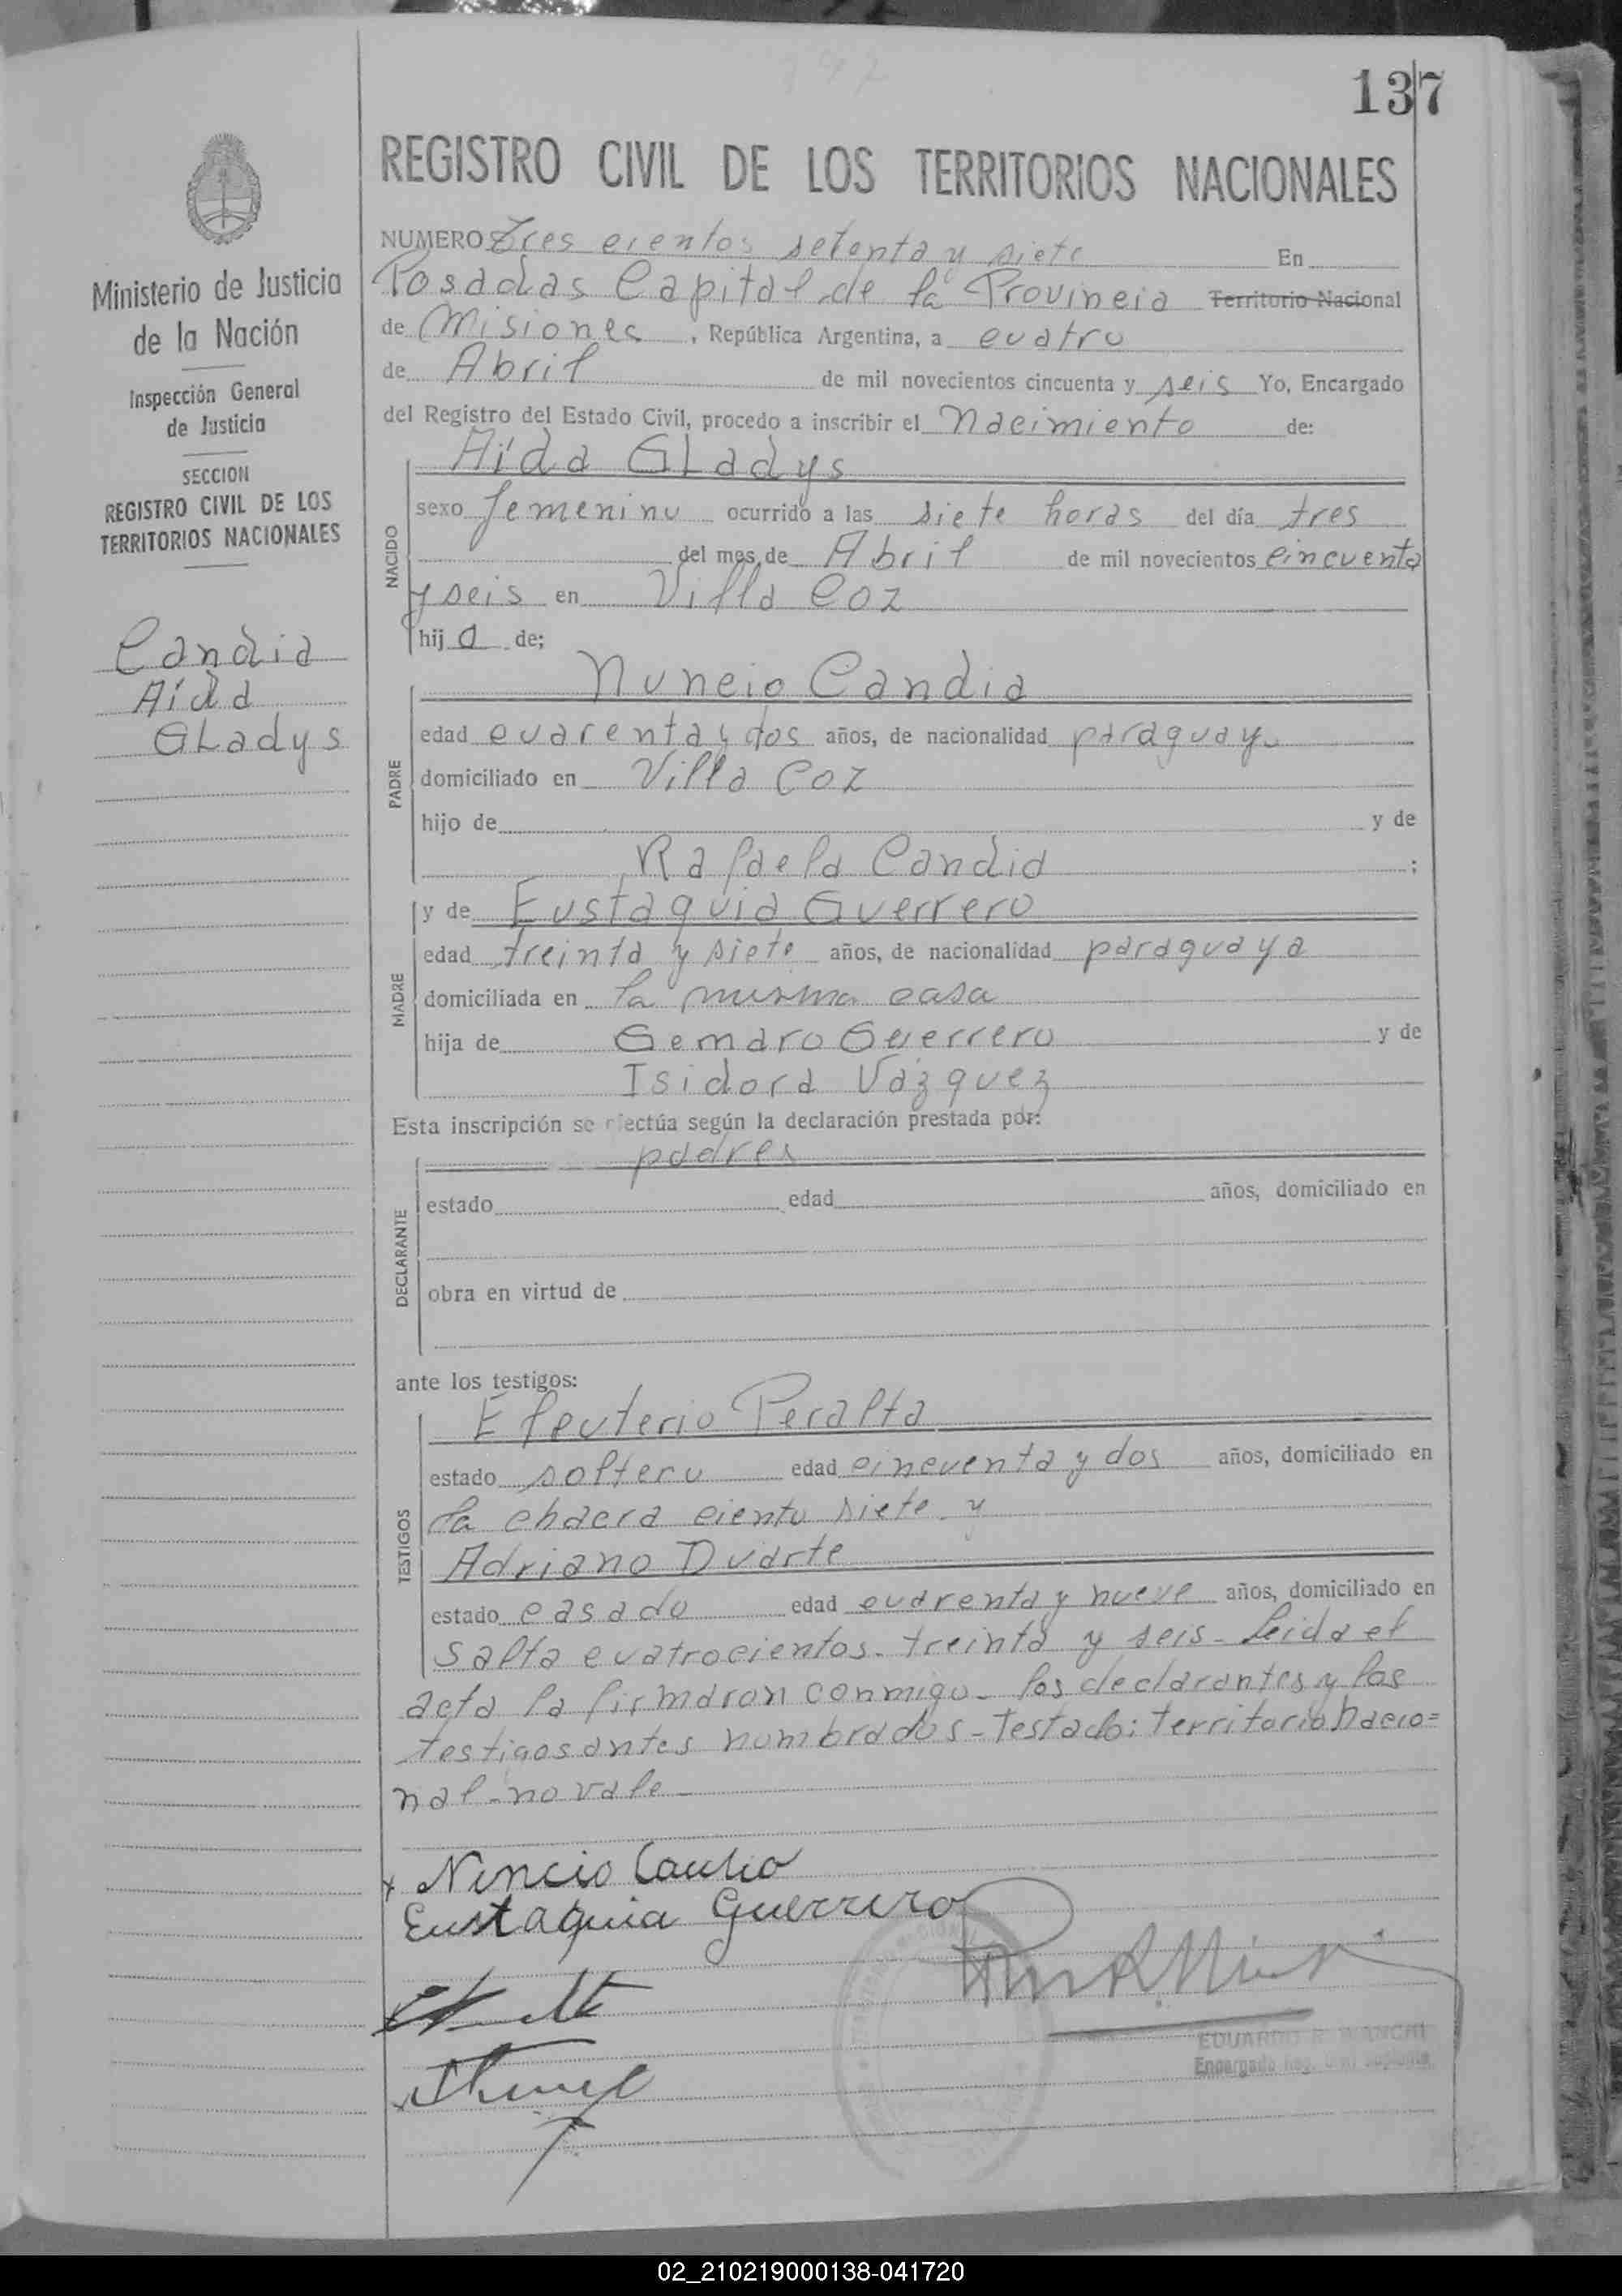 137
REGISTRO CIVIL DE LOS TERRITORIOS NACIONALES
NUMERO Tres cientos setenta y siete En
Posadas Capital de la Provincia Territorio Nacional
de Misiones, República Argentina, a cuatro
de Abril de mil novecientos cincuenta y seis Yo, Encargado
del Registro del Estado Civil, procedo a inscribir el Nacimiento de:
Aída GLadys
NACIDO
sexo femenino ocurrido a las siete horas del día tres
del mes de Abril de mil novecientos cincuenta
y seis en Villa Coz
hija de;
PADRE
Nuncio Candia
edad cuarenta y dos años, de nacionalidad paraguayo
domiciliado en Villa Coz
hijo de y de
Rafaela Candia ;
MADRE
y de Eustaquia Guerrero
edad treinta y siete años, de nacionalidad paraguaya
domiciliada en la misma casa
hija de Genaro Guerrero y de
Isidora Vázquez
Esta inscripción se efectúa según la declaración prestada por:
DECLARANTE
padres
estado edad años, domiciliado en
obra en virtud de
ante los testigos:
TESTIGOS
Eleuterio Peralta
estado soltero edad cincuenta y dos años, domiciliado en
la chacra ciento siete y
Adriano Duarte
estado casado edad cuarenta y nueve años, domiciliado en
Salta cuatrocientos treinta y seis- leida el
acta la firmaron conmigo- los declarantes y los
testigos antes nombrados- Testado: territorio nacio=
nal-no vale-
Nuncio Candia
Eustaquia Guerrero
EDUARDO R. BIANCHI
Encargado Reg. Civil Suplente
Ministerio de Justicia
de la Nación
Inspección General
de Justicia
SECCION
REGISTRO CIVIL DE LOS
TERRITORIOS NACIONALES
Candia
Aída
GLadys
02_210219000138-041720